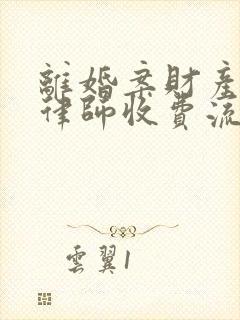 離婚案財產
律師收費流
雲翼1